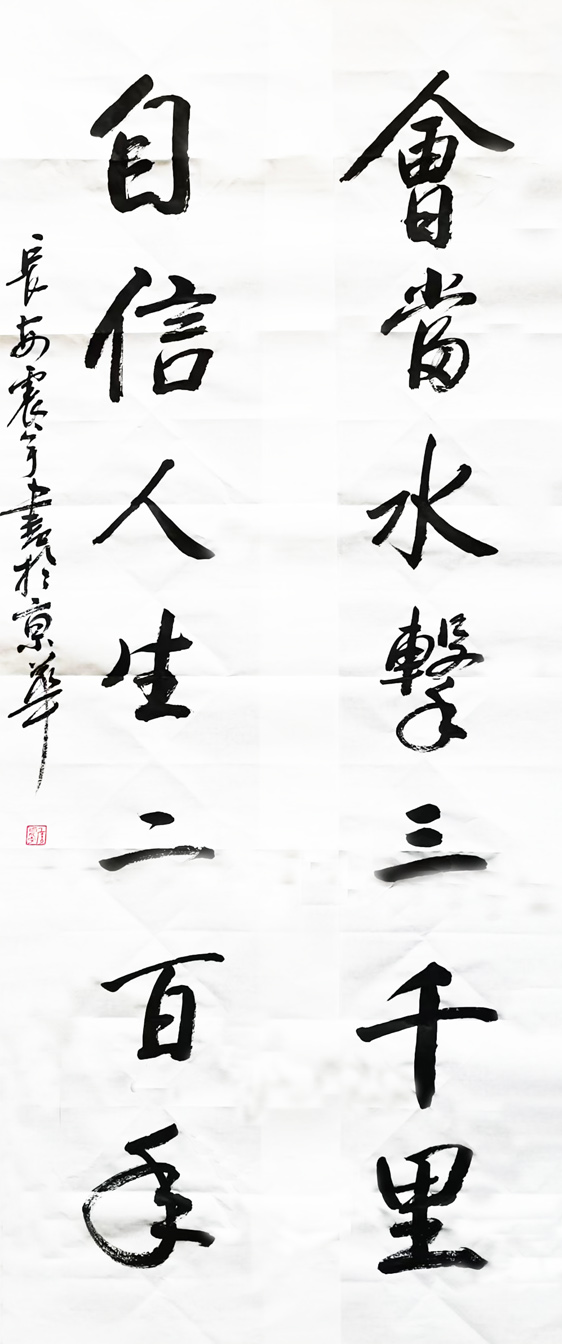 會當水擊三千里
自信人生二百年
長安震宇書於京華